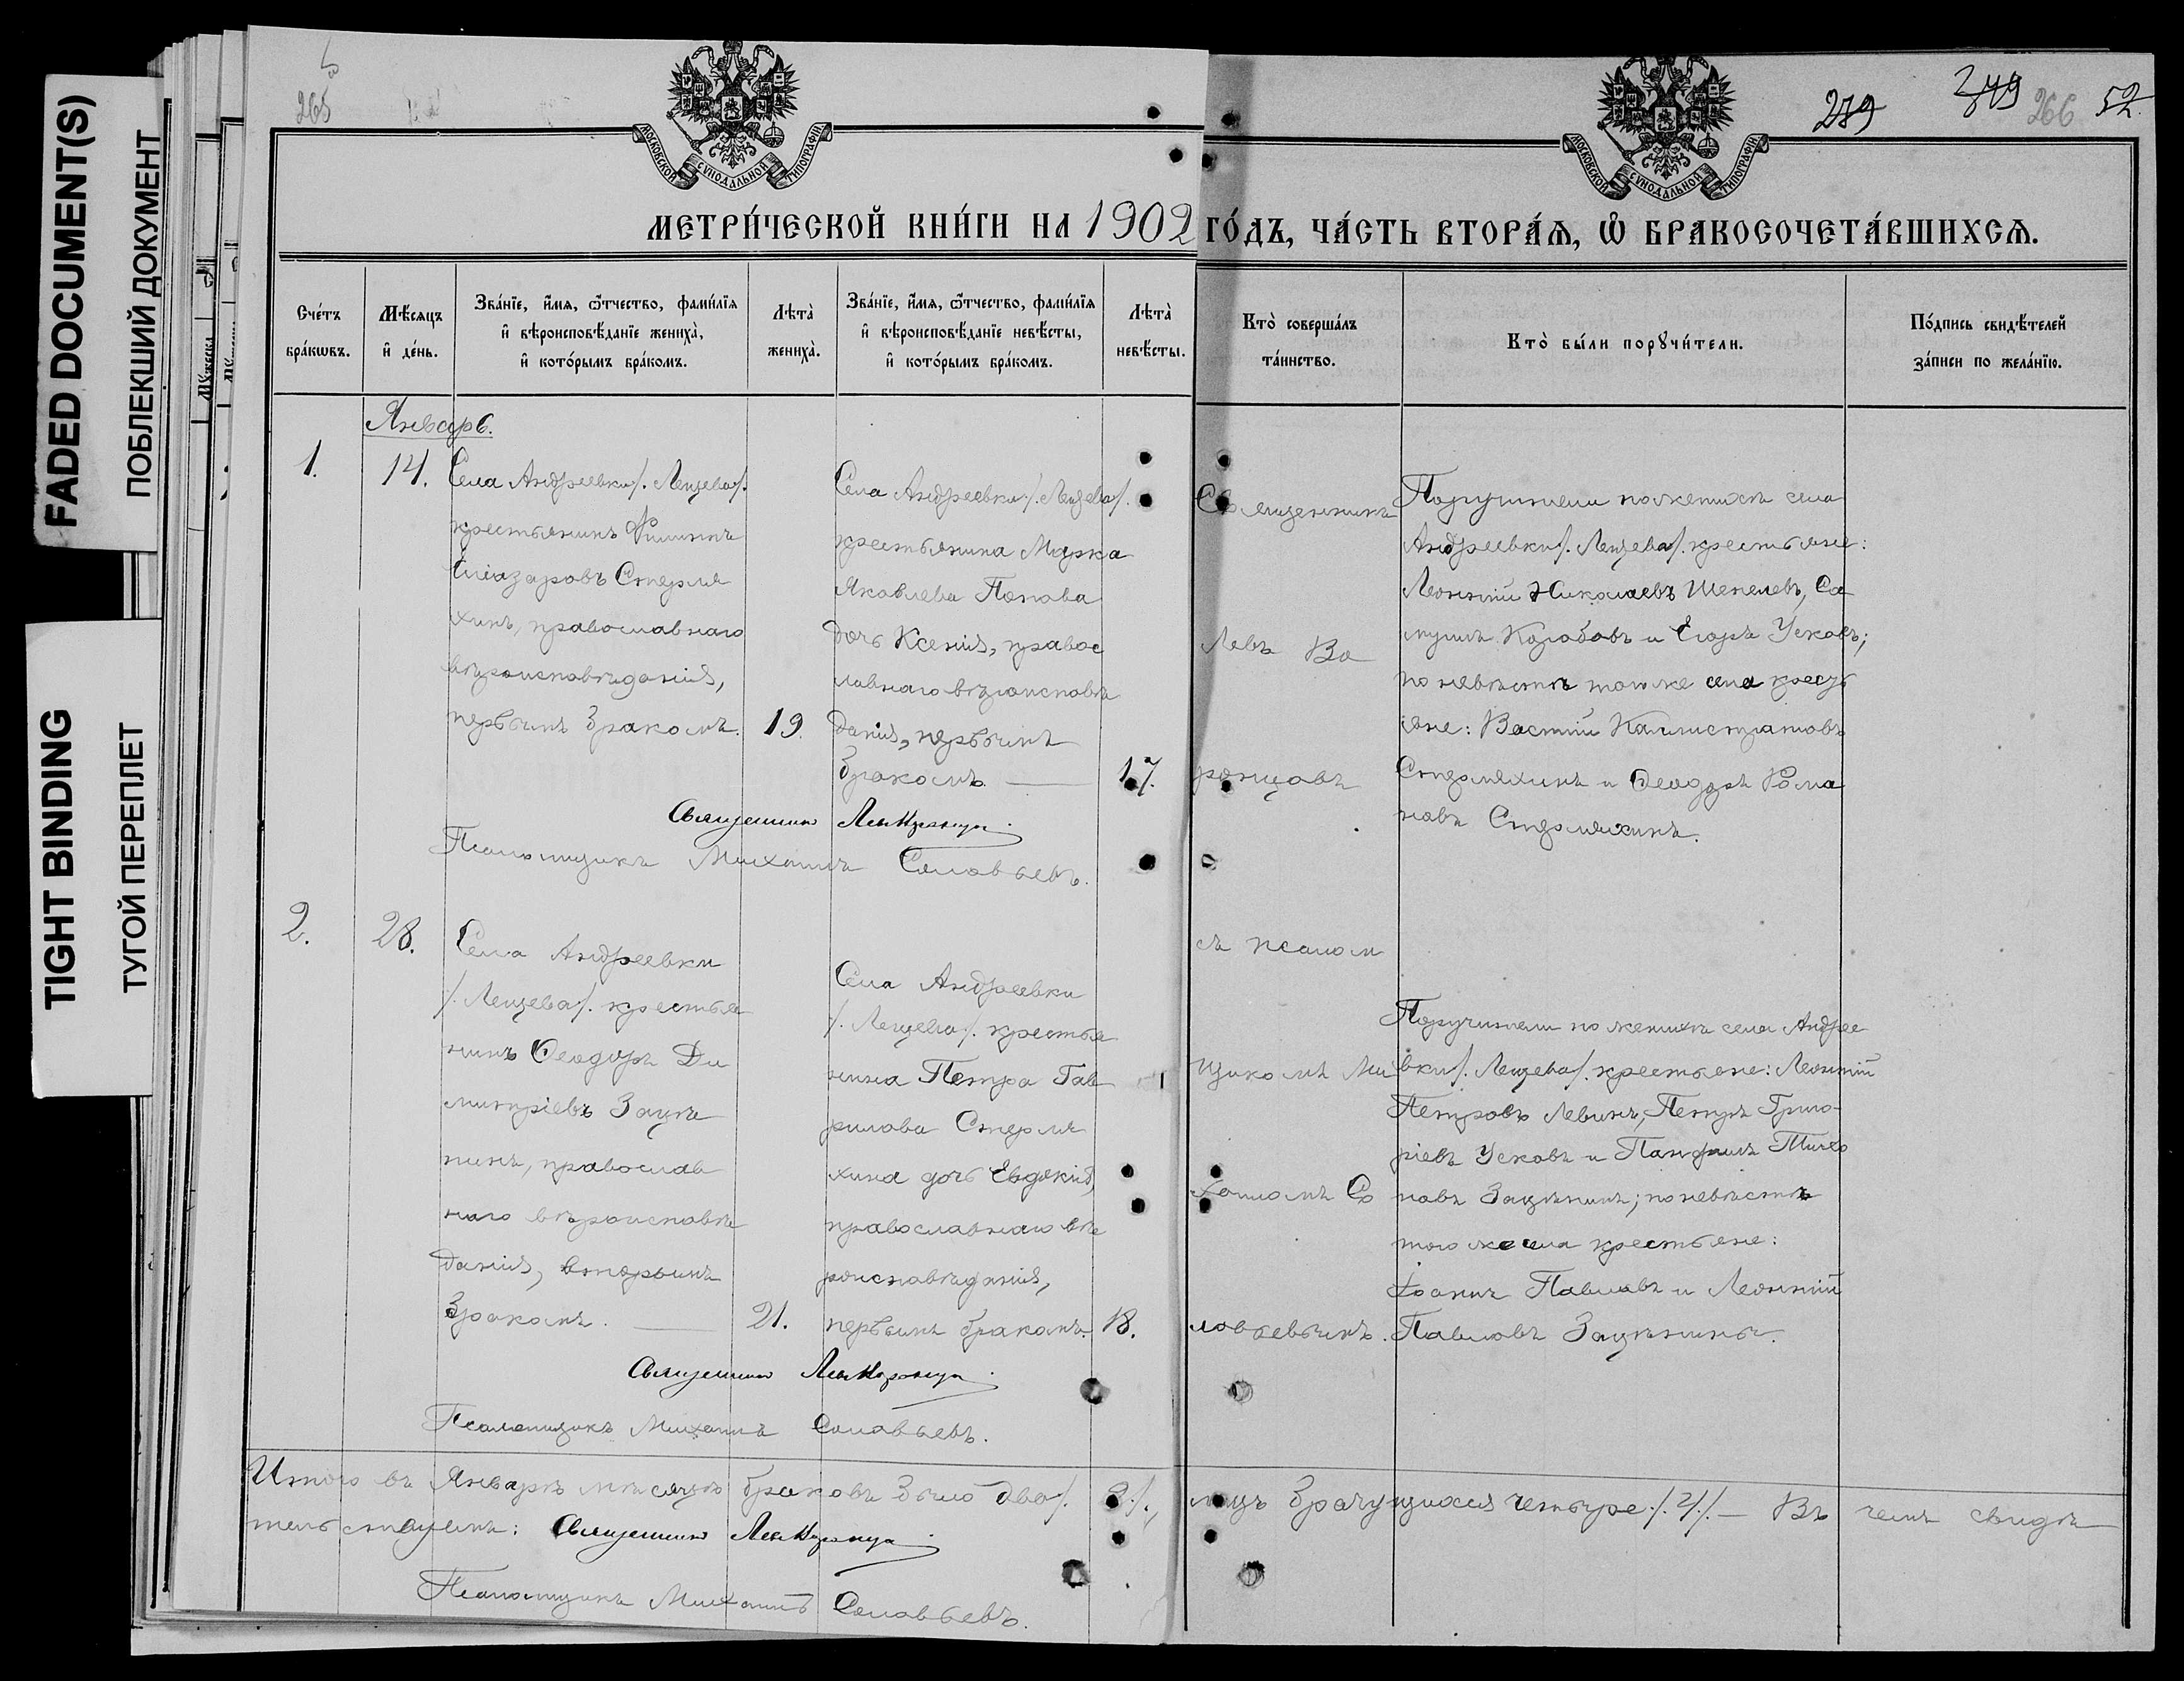 FADED DOCUMENT(S)
ПОБЛЕКШИЙ ДОКУМЕНТ
TIGHT BINDING
ТУГОЙ ПЕРЕПЛЕТ
265
279 349 266 52.
МОСКОВСКОЙ СѴНОДАЛЬНОЙ ТИПОГРАФІИ
МОСКОВСКОЙ СѴНОДАЛЬНОЙ ТИПОГРАФІИ
МЕТРИ́ЧЕСКОЙ КНИ́ГИ НА 1902 ГО́ДЪ, ЧА́СТЬ ВТОРА́Ѧ, Ѽ БРАКОСОЧЕТА́ВШИХСѦ.
Сче́тъ
бра́кѡвъ.
Мѣ́сяцъ
и҆ де́нь.
Зва́нїе, и҆́мя, ѻ҆́тчество, фами́лїя
и҆ вѣроисповѣ́данїе жениха̀,
и҆ кото́рымъ бра́комъ.
Лѣта̀
жениха̀.
Зва́нїе, и҆́мя, ѻ҆́тчество, фами́лїя
и҆ вѣроисповѣ́данїе невѣ́сты,
и҆ кото́рымъ бра́комъ.
Лѣта̀
невѣ́сты.
Кто̀ соверша́лъ
та́инство.
Кто̀ бы́ли порꙋчи́тели.
По́дпись свидѣ́телей
за́писи по жела́нїю.
Январь.
1.
14.
Села Андреевки /. Лещева /.
крестьянинъ Филиппъ
Елиазаровъ Стерля
хинъ, православнаго
вѣроисповѣданія,
первымъ бракомъ.
19.
Села Андреевки /. Лещева /.
крестьянина Марка
Яковлева Попова
дочь Ксенія, правос
лавнаго вѣроисповѣ
данія, первымъ
бракомъ. —
17.
Священникъ
Левъ Во
ронцовъ
съ псалом
щикомъ Ми
хаиломъ Со
ловьевымъ.
Поручители по женихѣ села
Андреевки /. Лещева /. крестьяне:
Леонтій Николаевъ Шепелевъ, Са
муилъ Коробовъ и Егоръ Усковъ;
по невѣстѣ того же села кресть
яне: Вастій Каллистратовъ
Стерляхинъ и Ѳеодоръ Рома
новъ Стерляхинъ.
Священникъ Левъ Воронцовъ
Псаломщикъ Михаилъ Соловьевъ.
2.
28.
Села Андреевки
/. Лещева /. крестья
нинъ Ѳеодоръ Ди
митріевъ Зацѣ
пинъ, православ
наго вѣроисповѣ
данія, вторымъ
бракомъ. —
21.
Села Андреевки
/. Лещева /. крестья
нина Петра Гав
рилова Стерля
хина дочь Евдокія,
православнаго вѣ
роисповѣданія,
первымъ бракомъ.
18.
Поручители по женихѣ села Андрее
вки /. Лещева /. крестьяне: Леонтій
Петровъ Левинъ, Петръ Григо-
ріевъ Усковъ и Панфилъ Тихо
новъ Зацѣпинъ; по невѣстѣ
того же села крестьяне:
Іоаннъ Павловъ и Леонтій
Павловъ Зацѣпины.
Священникъ Левъ Воронцовъ
Псаломщикъ Михаилъ Соловьевъ.
Итого въ Январѣ мѣсяцѣ браковъ было два /. 2 /., лицъ брачущихся четыре /. 4 /. — Въ чемъ свидѣ
тельствуемъ: Священникъ Левъ Воронцовъ
Псаломщикъ Михаилъ Соловьевъ.